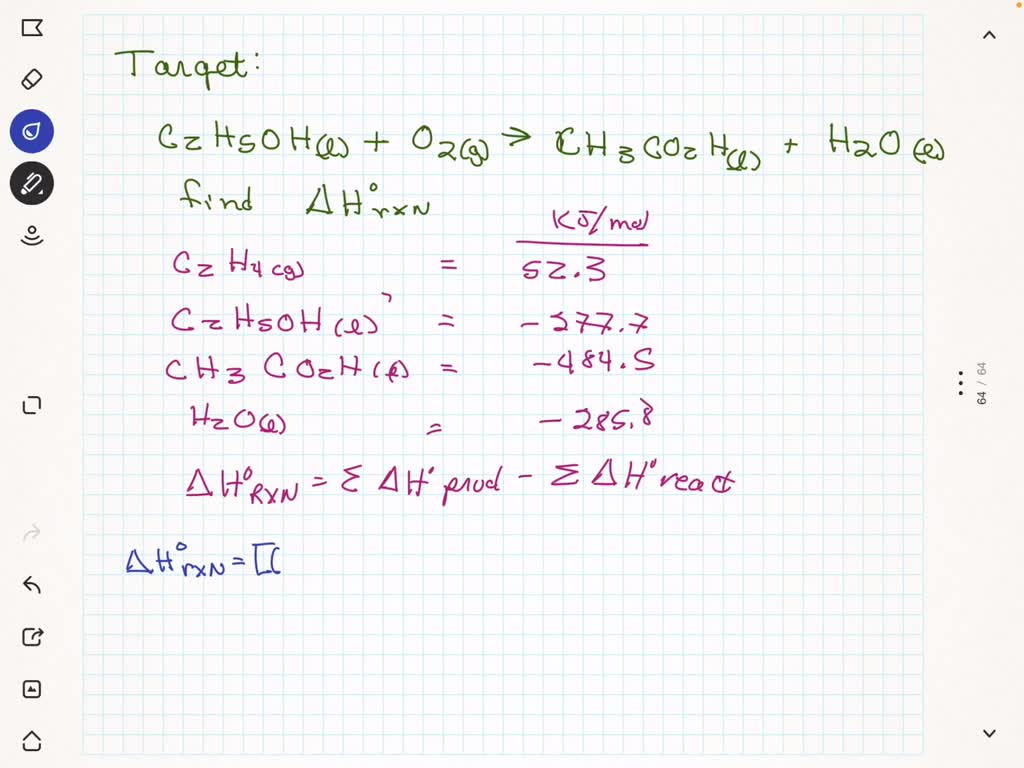 Target:
C2H5OH(l) + O2(g) → CH3CO2H(l) + H2O(l)
find ΔH°rxn
KJ/mol
C2H4(g) = 52.3
C2H5OH(l) = -277.7
CH3CO2H(l) = -484.5
H2O(l) = -285.8
ΔH°RXN = Σ ΔH° prod - Σ ΔH° react
ΔH°rxn = [(
64 / 64